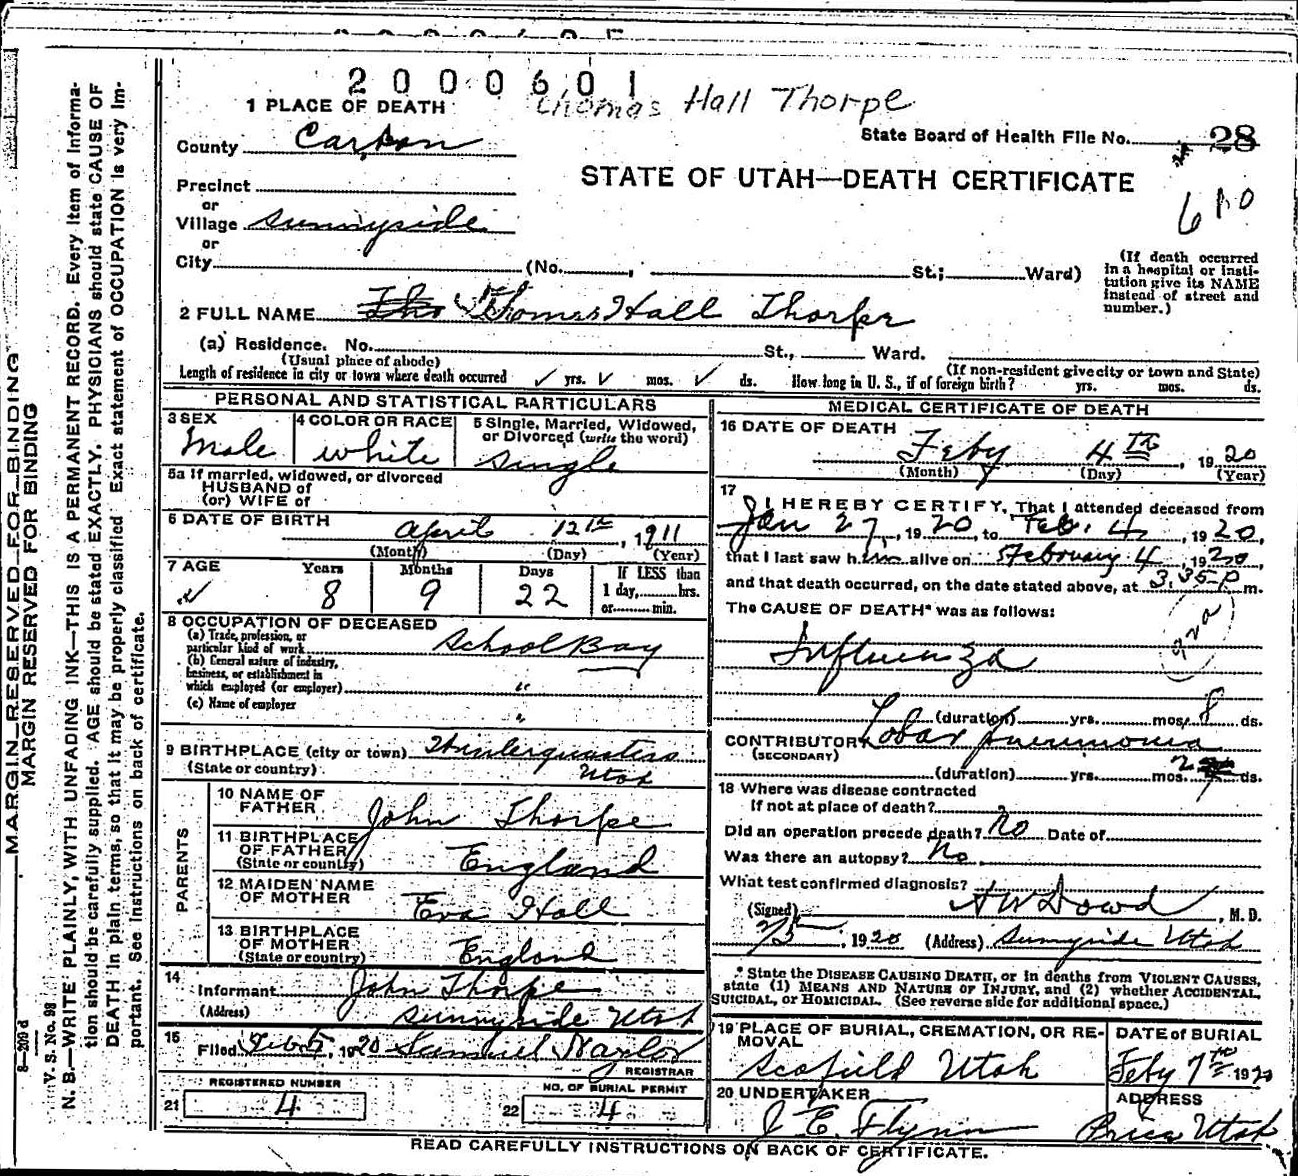 2000601
Thomas Hall Thorpe
1 PLACE OF DEATH
State Board of Health File No. 28
County Carbon
STATE OF UTAH—DEATH CERTIFICATE
610
Precinct
or
Village Sunnyside
or
City (No. , St.; Ward)
(If death occurred in a hospital or institution give its NAME instead of street and number.)
2 FULL NAME Thomas Hall Thorpe
(a) Residence. No. St., Ward.
(Usual place of abode) (If non-resident give city or town and State)
Length of residence in city or town where death occurred ✓ yrs. ✓ mos. ✓ ds. How long in U. S., if of foreign birth? yrs. mos. ds.
PERSONAL AND STATISTICAL PARTICULARS
3 SEX 4 COLOR OR RACE 5 Single, Married, Widowed,
or Divorced (write the word)
Male white Single
5a If married, widowed, or divorced
HUSBAND of
(or) WIFE of
6 DATE OF BIRTH April 12th, 1911
(Month) (Day) (Year)
7 AGE Years Months Days If LESS than
8 9 22 1 day, hrs.
or min.
8 OCCUPATION OF DECEASED
(a) Trade, profession, or
particular kind of work School Boy
(b) General nature of industry,
business, or establishment in
which employed (or employer) "
(c) Name of employer "
9 BIRTHPLACE (city or town)
(State or country) Utah
PARENTS
10 NAME OF
FATHER John Thorpe
11 BIRTHPLACE
OF FATHER
(State or country) England
12 MAIDEN NAME
OF MOTHER Eva Hall
13 BIRTHPLACE
OF MOTHER
(State or country) England
14
Informant John Thorpe
(Address) Sunnyside Utah
15
Filed Feb 5, 1920 Samuel Naylor
REGISTRAR
REGISTERED NUMBER NO. OF BURIAL PERMIT
21 4 22 4
MEDICAL CERTIFICATE OF DEATH
16 DATE OF DEATH
Feby 4th, 1920
(Month) (Day) (Year)
17
I HEREBY CERTIFY, That I attended deceased from
Jan 27, 1920, to Feb. 4, 1920,
that I last saw him alive on February 4, 1920,
and that death occurred, on the date stated above, at 3.35 p m.
The CAUSE OF DEATH* was as follows:
Influenza
(duration) yrs. mos. 8 ds.
CONTRIBUTORY Lobar pneumonia
(SECONDARY)
(duration) yrs. mos. ds.
18 Where was disease contracted
if not at place of death?
Did an operation precede death? No Date of
Was there an autopsy? No.
What test confirmed diagnosis?
(Signed) A W Dowd, M. D.
2/5, 1920 (Address) Sunnyside Utah
* State the DISEASE CAUSING DEATH, or in deaths from VIOLENT CAUSES,
state (1) MEANS AND NATURE OF INJURY, and (2) whether ACCIDENTAL,
SUICIDAL, or HOMICIDAL. (See reverse side for additional space.)
19 PLACE OF BURIAL, CREMATION, OR RE-
MOVAL
Scofield Utah
DATE OF BURIAL
Feby 7th 1920
20 UNDERTAKER
J. E. Flynn
ADDRESS
Price Utah
READ CAREFULLY INSTRUCTIONS ON BACK OF CERTIFICATE.
MARGIN RESERVED FOR BINDING
MARGIN RESERVED FOR BINDING
8—209 d
V. S. No. 98
N. B.—WRITE PLAINLY, WITH UNFADING INK—THIS IS A PERMANENT RECORD. Every item of Informa-
tion should be carefully supplied. AGE should be stated EXACTLY. PHYSICIANS should state CAUSE OF
DEATH in plain terms, so that it may be properly classified. Exact statement of OCCUPATION is very Im-
portant. See Instructions on back of certificate.